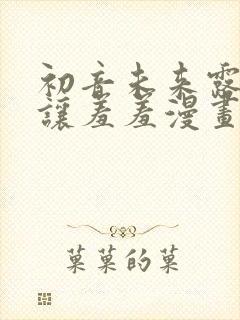 初音未来露
讓羞羞漫畫
菓菓的菓